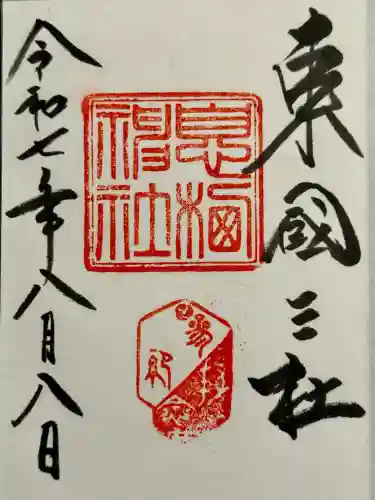 東國三社
息栖
神社
令和七年八月八日